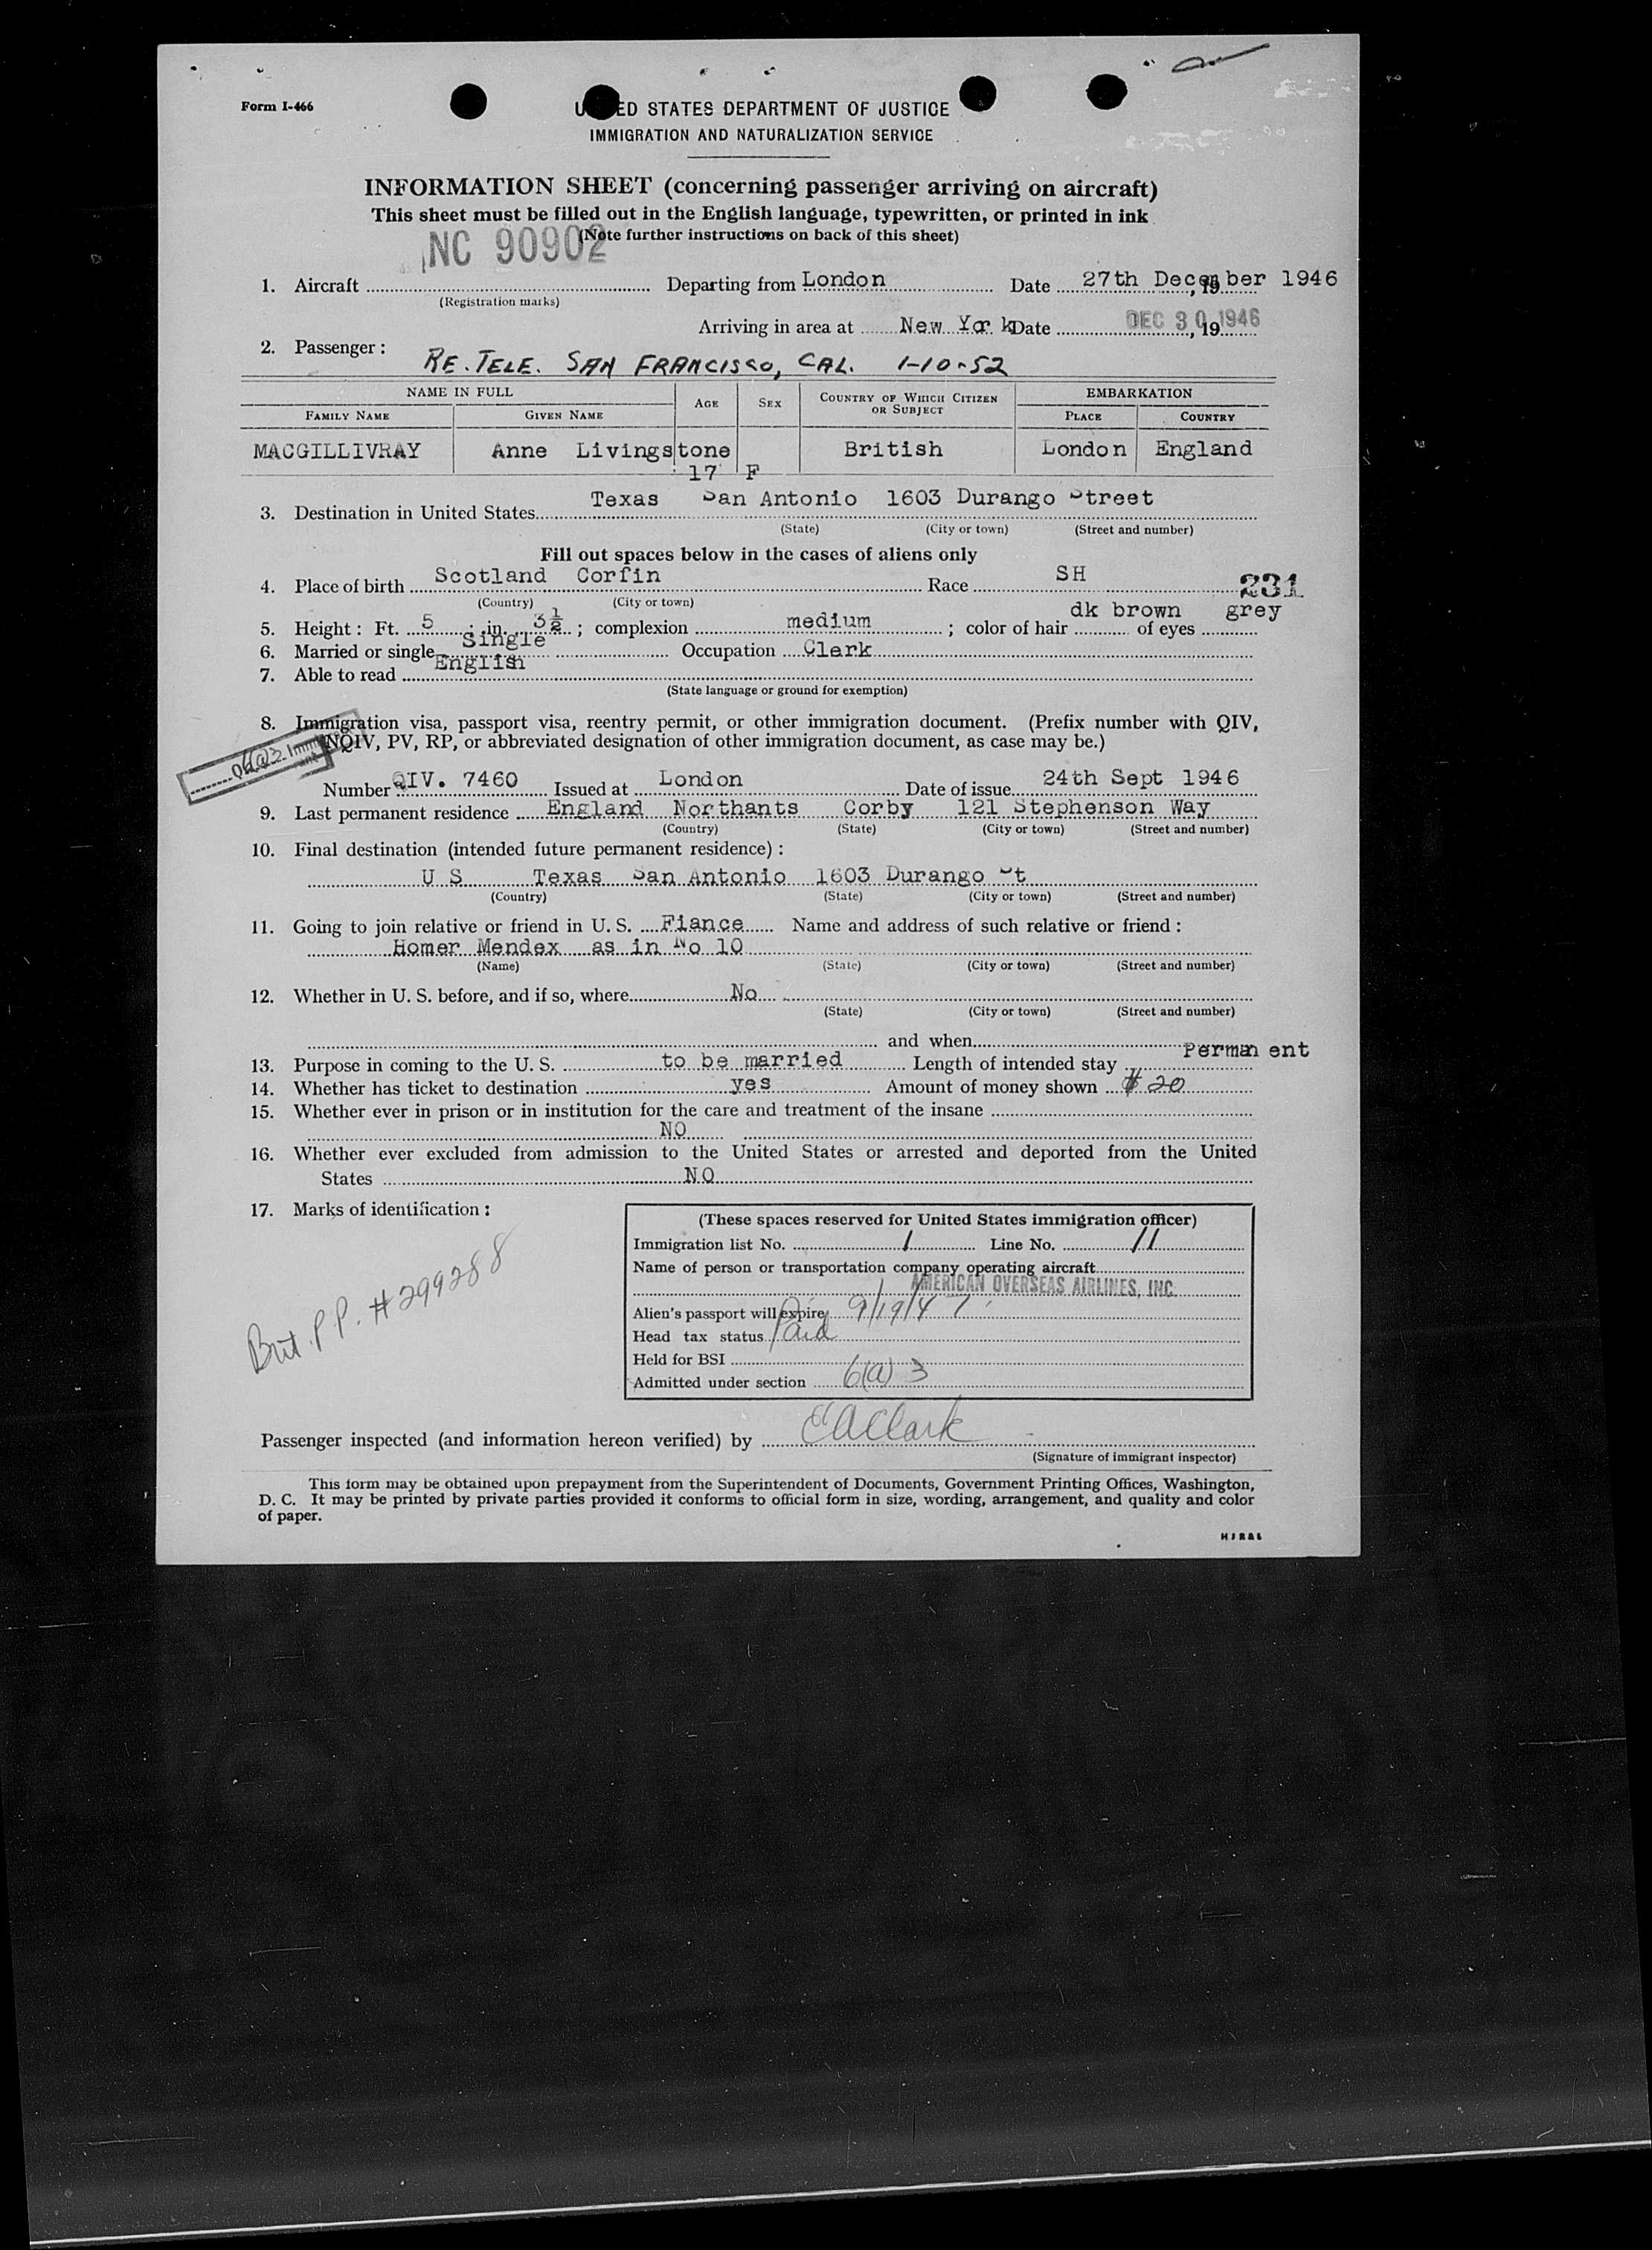 Form I-466
UNITED STATES DEPARTMENT OF JUSTICE
IMMIGRATION AND NATURALIZATION SERVICE
INFORMATION SHEET (concerning passenger arriving on aircraft)
This sheet must be filled out in the English language, typewritten, or printed in ink
(Note further instructions on back of this sheet)
NC 90902
1. Aircraft Departing from London Date 27th December 1946, 19
(Registration marks)
Arriving in area at New York Date DEC 30 1946, 19
2. Passenger:
RE. TELE. SAN FRANCISCO, CAL. 1-10-52
NAME IN FULL AGE SEX COUNTRY OF WHICH CITIZEN OR SUBJECT EMBARKATION
FAMILY NAME GIVEN NAME PLACE COUNTRY
MACGILLIVRAY Anne Livingstone British London England
17 F
Texas San Antonio 1603 Durango Street
3. Destination in United States
(State) (City or town) (Street and number)
Fill out spaces below in the cases of aliens only
4. Place of birth Scotland Corfin Race SH
231
(Country) (City or town)
5. Height: Ft. 5; in. 3½; complexion medium; color of hair dk brown of eyes grey
6. Married or single Single Occupation Clerk
7. Able to read English
(State language or ground for exemption)
8. Immigration visa, passport visa, reentry permit, or other immigration document. (Prefix number with QIV,
NQIV, PV, RP, or abbreviated designation of other immigration document, as case may be.)
Number QIV. 7460 Issued at London Date of issue 24th Sept 1946
9. Last permanent residence England Northants Corby 121 Stephenson Way
(Country) (State) (City or town) (Street and number)
10. Final destination (intended future permanent residence):
U S Texas San Antonio 1603 Durango St
(Country) (State) (City or town) (Street and number)
11. Going to join relative or friend in U. S. Fiance Name and address of such relative or friend:
Homer Mendex as in No 10
(Name) (State) (City or town) (Street and number)
12. Whether in U. S. before, and if so, where No
(State) (City or town) (Street and number)
and when
13. Purpose in coming to the U. S. to be married Length of intended stay Permanent
14. Whether has ticket to destination yes Amount of money shown $20
15. Whether ever in prison or in institution for the care and treatment of the insane
NO
16. Whether ever excluded from admission to the United States or arrested and deported from the United
States NO
17. Marks of identification:
Brit. P.P. #299288
(These spaces reserved for United States immigration officer)
Immigration list No. 1 Line No. 11
Name of person or transportation company operating aircraft
AMERICAN OVERSEAS AIRLINES, INC.
Alien's passport will expire 9/19/47
Head tax status Paid
Held for BSI
Admitted under section 6(a) 3
Passenger inspected (and information hereon verified) by EAClark
(Signature of immigrant inspector)
This form may be obtained upon prepayment from the Superintendent of Documents, Government Printing Offices, Washington,
D. C. It may be printed by private parties provided it conforms to official form in size, wording, arrangement, and quality and color
of paper.